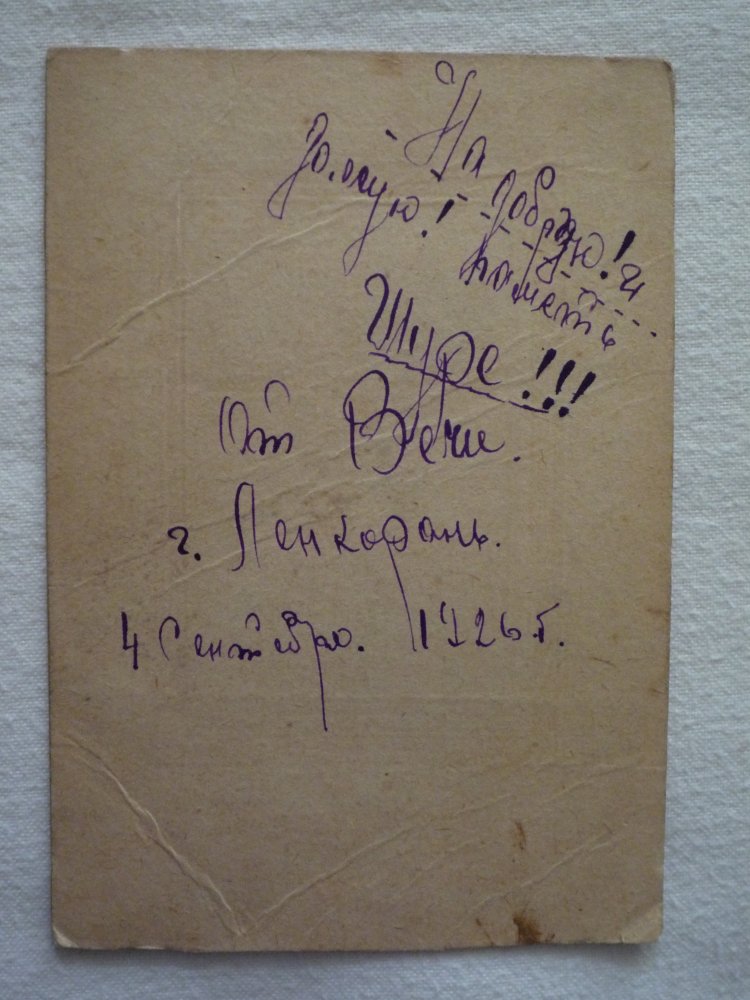 На
добрую! и
долгую!
паметь
Шуре!!!
От
г. Ленкорань.
4 Сентебря. 1926 г.